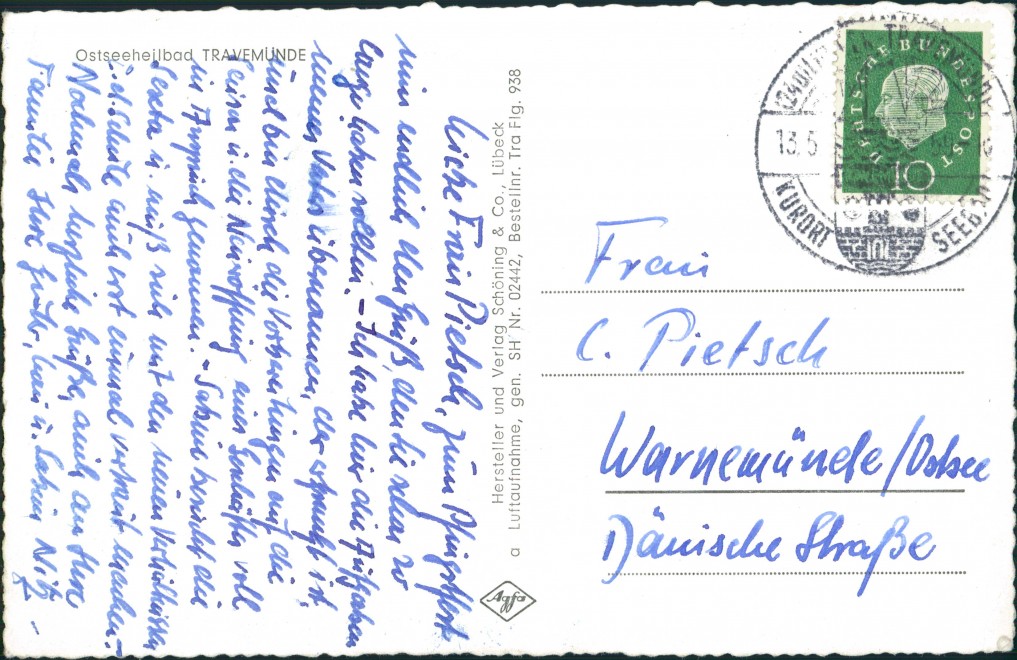 Ostseeheilbad TRAVEMÜNDE
Liebe Frau Pietsch, zum Pfingstfest
nun endlich den Gruß, den Sie schon so
lange haben sollten. – Ich habe hier die Aufgaben
meines Vaters übernommen, der erkrankt ist,
und bin durch die Vorbereitungen auf die
Saison u. die Neueröffnung eines Geschäftes voll
in Anspruch genommen. – Sabine besucht die
Sexta u. muß sich mit den neuen Verhältnissen
i. d. Schule auch erst einmal vertraut machen. –
Nochmals herzliche Grüße, auch an Ihre
Familie Ihre u. Sabine
Hersteller und Verlag Schöning & Co., Lübeck
a Luftaufnahme, gen. SH Nr. 02442, Bestellnr. Tra Flg. 938
Agfa
DEUTSCHE BUNDESPOST
10
TRAVEMÜNDE
13.5
KURORT SEEBAD
Frau
C. Pietsch
Warnemünde/Ostsee
Dänische Straße